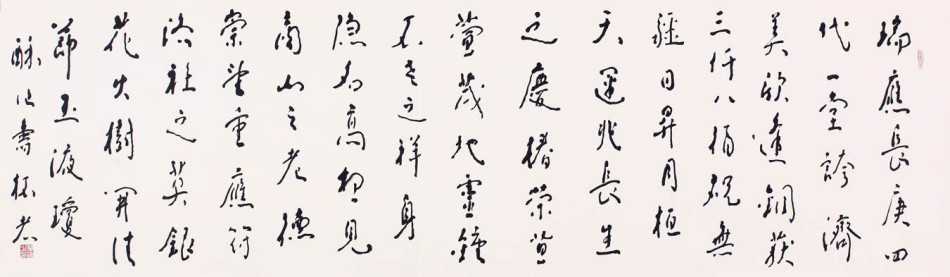 瑞應長庚四
代一堂誇濟
美欣逢
三仟八稱觥無
疆日昇月恒
天運兆長生
之慶椿榮萱
萱茂地靈鍾
不老之祥身
隱名高初見
商山之老德
崇望重應符
洛社之英銀
花火樹開佳
節玉液瓊
酥作壽杯